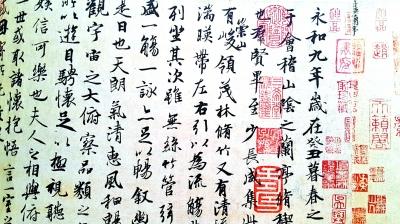 永和九年歲在癸丑暮春之
于會稽山陰之蘭亭脩稧
也群賢畢至少長咸集此
有崇山峻領茂林脩竹又有清
湍暎帶左右引以為流觴
列坐其次雖無絲竹管弦
盛一觴一詠亦足以暢敘幽
是日也天朗氣清惠風和暢
觀宇宙之大俯察品類
所以遊目騁懷足以極視聽
娛信可樂也夫人之相與俯
一世或取諸懷抱悟言一室之